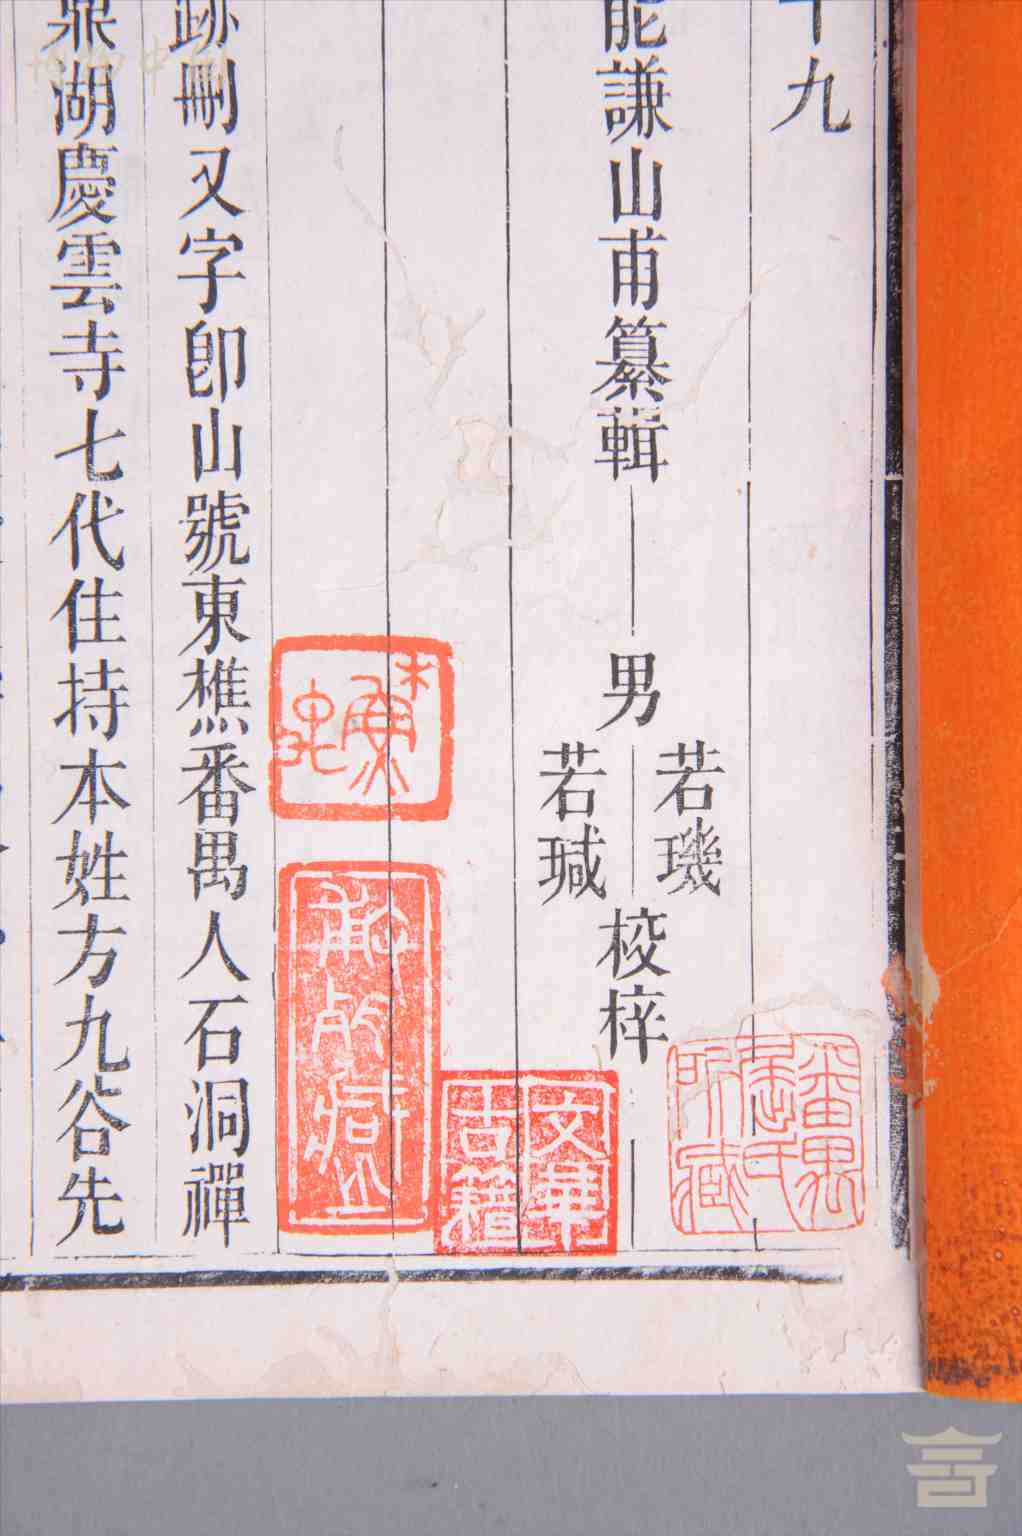 十九
能謙山甫纂輯
男
若璣
若瑊
校梓
跡刪又字卽山號東樵番禺人石洞禪
鼎湖慶雲寺七代住持本姓方九谷先
文華
古籍
番禺
屈氏
所藏